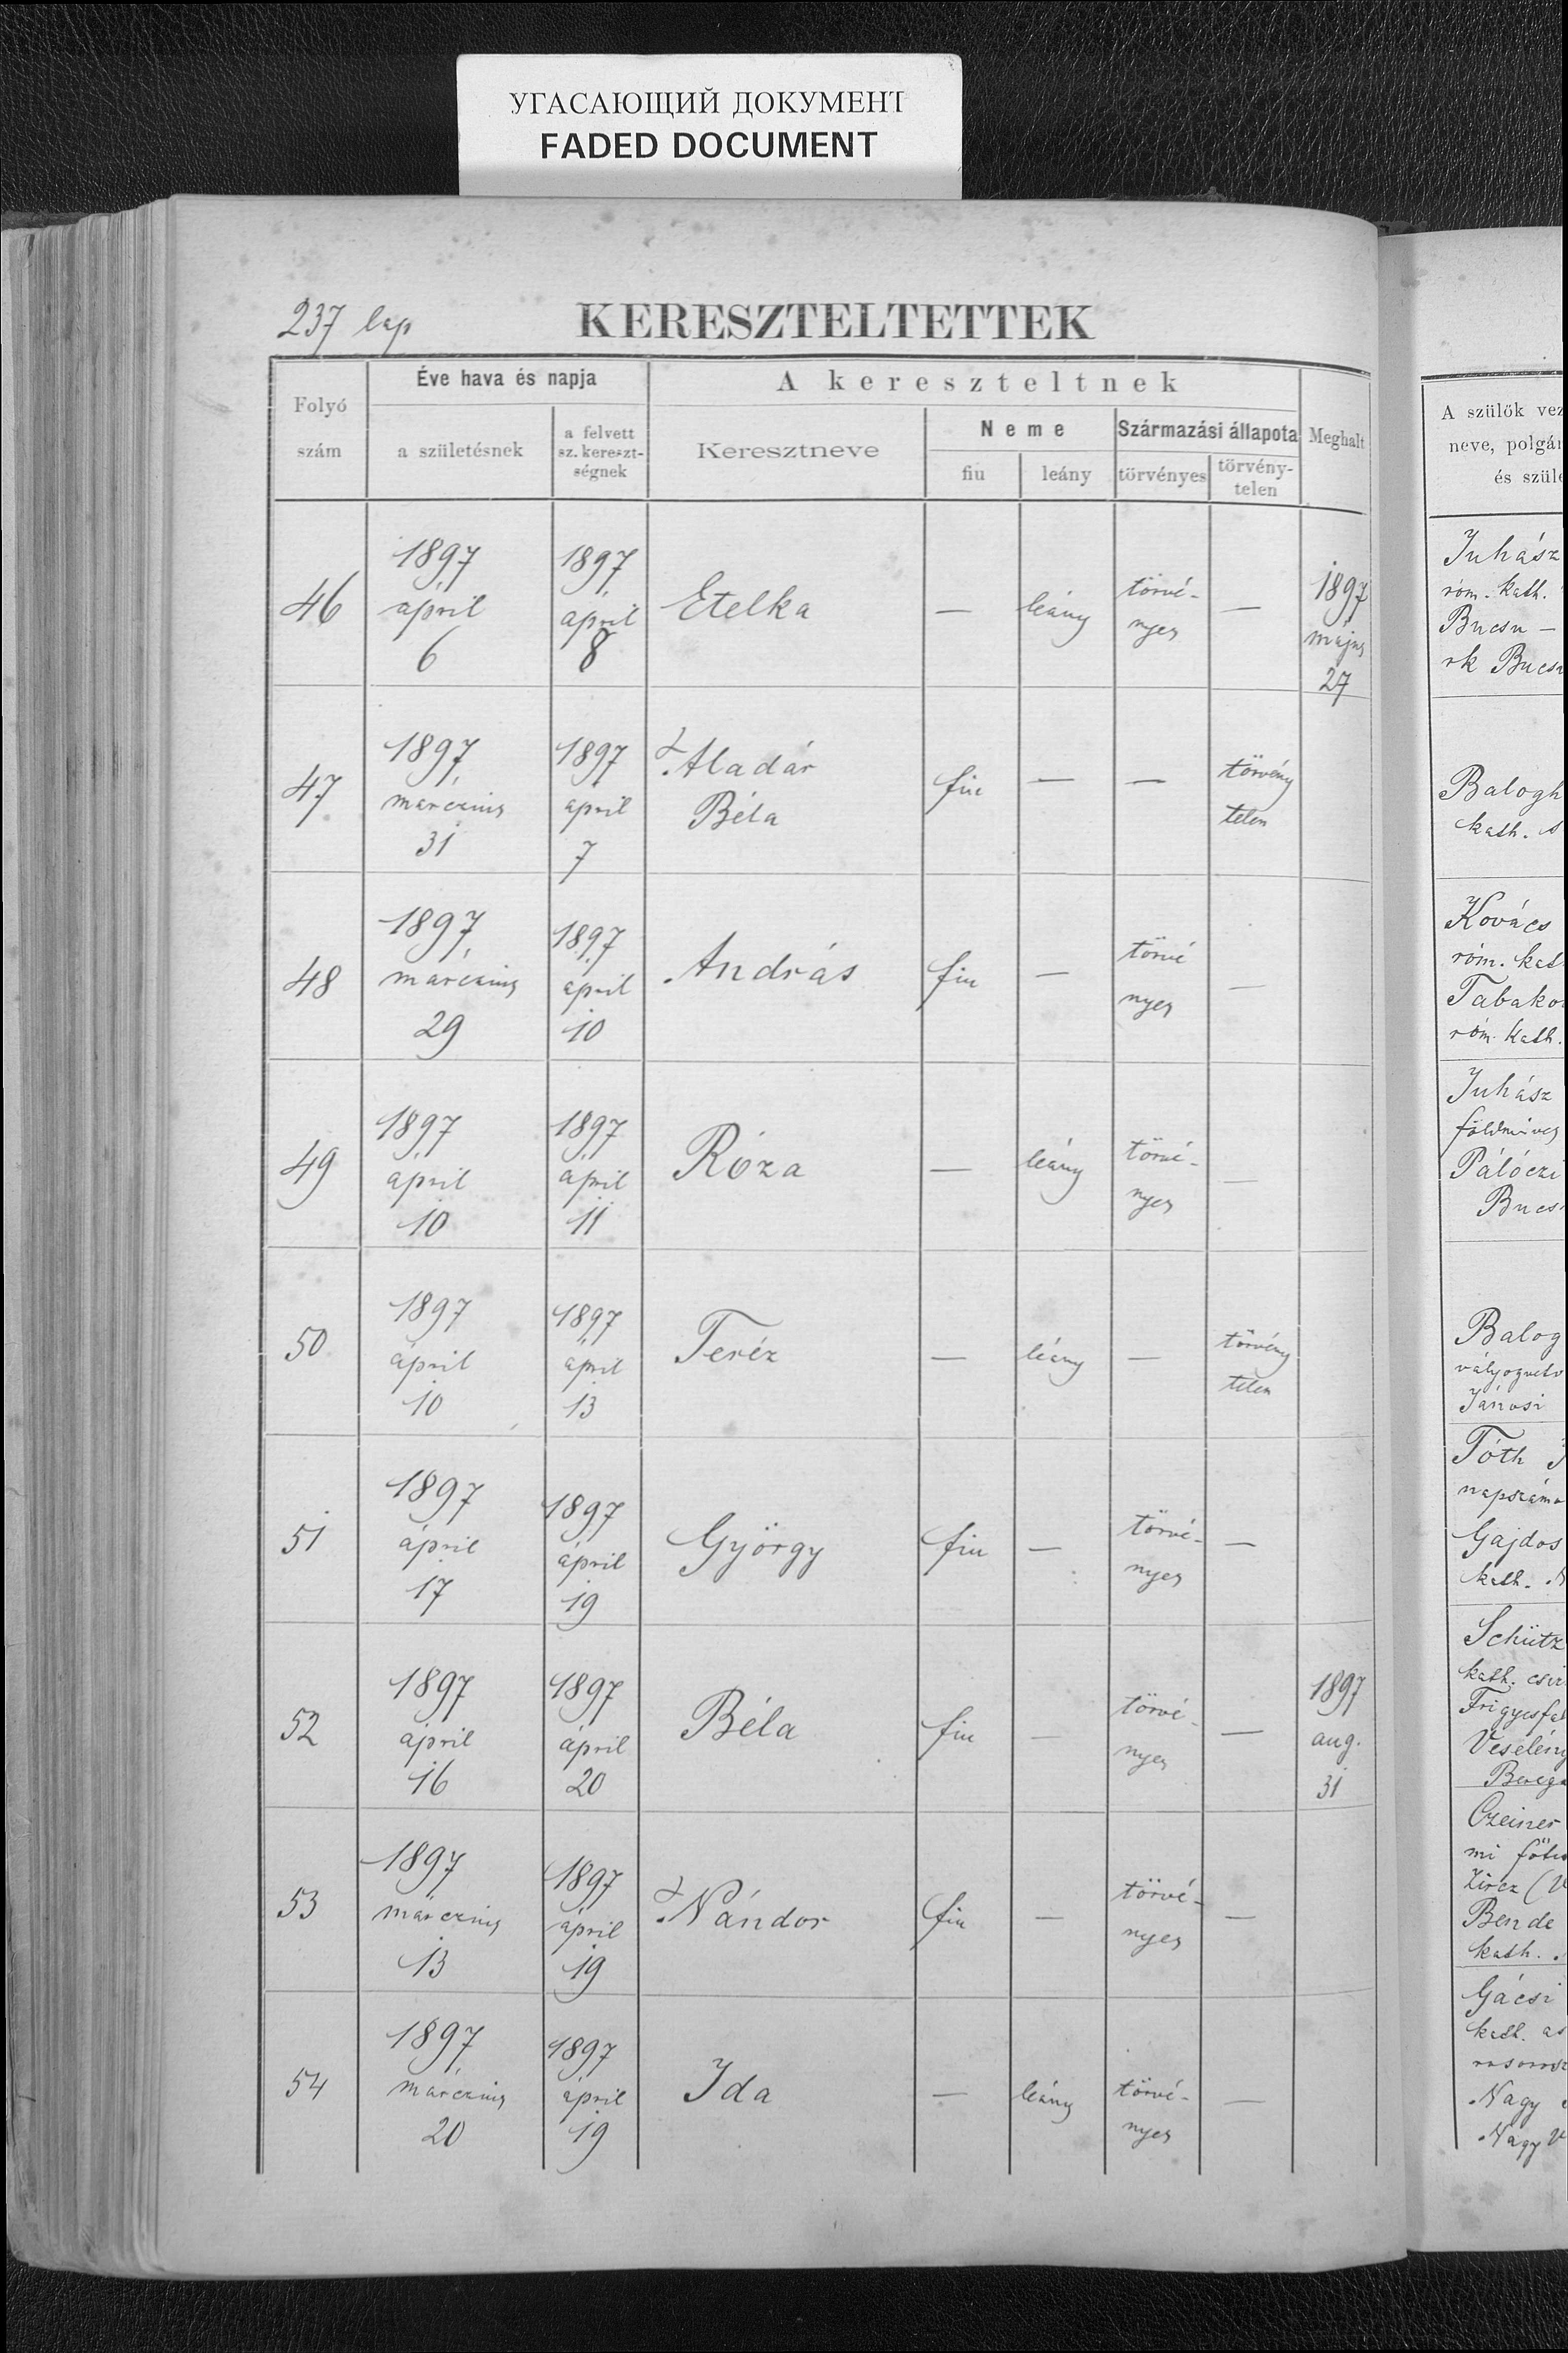 УГАСАЮЩИЙ ДОКУМЕНТ
FADED DOCUMENT
237 lap
KERESZTELTETTEK
Folyó szám
Éve hava és napja
a születésnek
a felvett sz. kereszt-ségnek
A kereszteltnek
Keresztneve
Neme
fiu
leány
Származási állapota
törvényes
törvény-telen
Meghalt
46
1897 ápril 6
1897 ápril 8
Etelka
—
leány
törvé-
nyes
—
1897
május
27
47
1897 márczius 31
1897 april 7
Aladár
Béla
fiu
—
—
törvény
telen
48
1897 márczius 29
1897 ápril 10
András
fiu
—
törvé
nyes
—
49
1897 ápril 10
1897 ápril 11
Róza
—
leány
törvé-
nyes
—
50
1897 ápril 10
1897 ápril 13
Teréz
—
leány
—
törvény
telen
51
1897 ápril 17
1897 ápril 19
György
fiu
—
törvé-
nyes
—
52
1897 ápril 16
1897 ápril 20
Béla
fiu
—
törvé-
nyes
—
1897
aug.
31
53
1897 márczius 13
1897 ápril 19
Nándor
fiu
—
törvé-
nyes
—
54
1897 márczius 20
1897 ápril 19
Ida
—
leány
törvé-
nyes
—
A szülők vez
neve, polgár
és szüle
Juhász
róm. kath.
Bucsu —
rk Bucsu
Balogh
kath.
Kovács
róm. kat
Tabako
róm. kath.
Juhász
földmives
Pálóczi
Bucs
Balog
vályogvető
Jánosi
Tóth
napszámo
Gajdos
kath.
Schütz
kath.
Frigyesfal
Veselény
Bereg
Czeiner
mi
Zircz
Bende
kath.
Gácsi
kath.
Nagy
Nagy